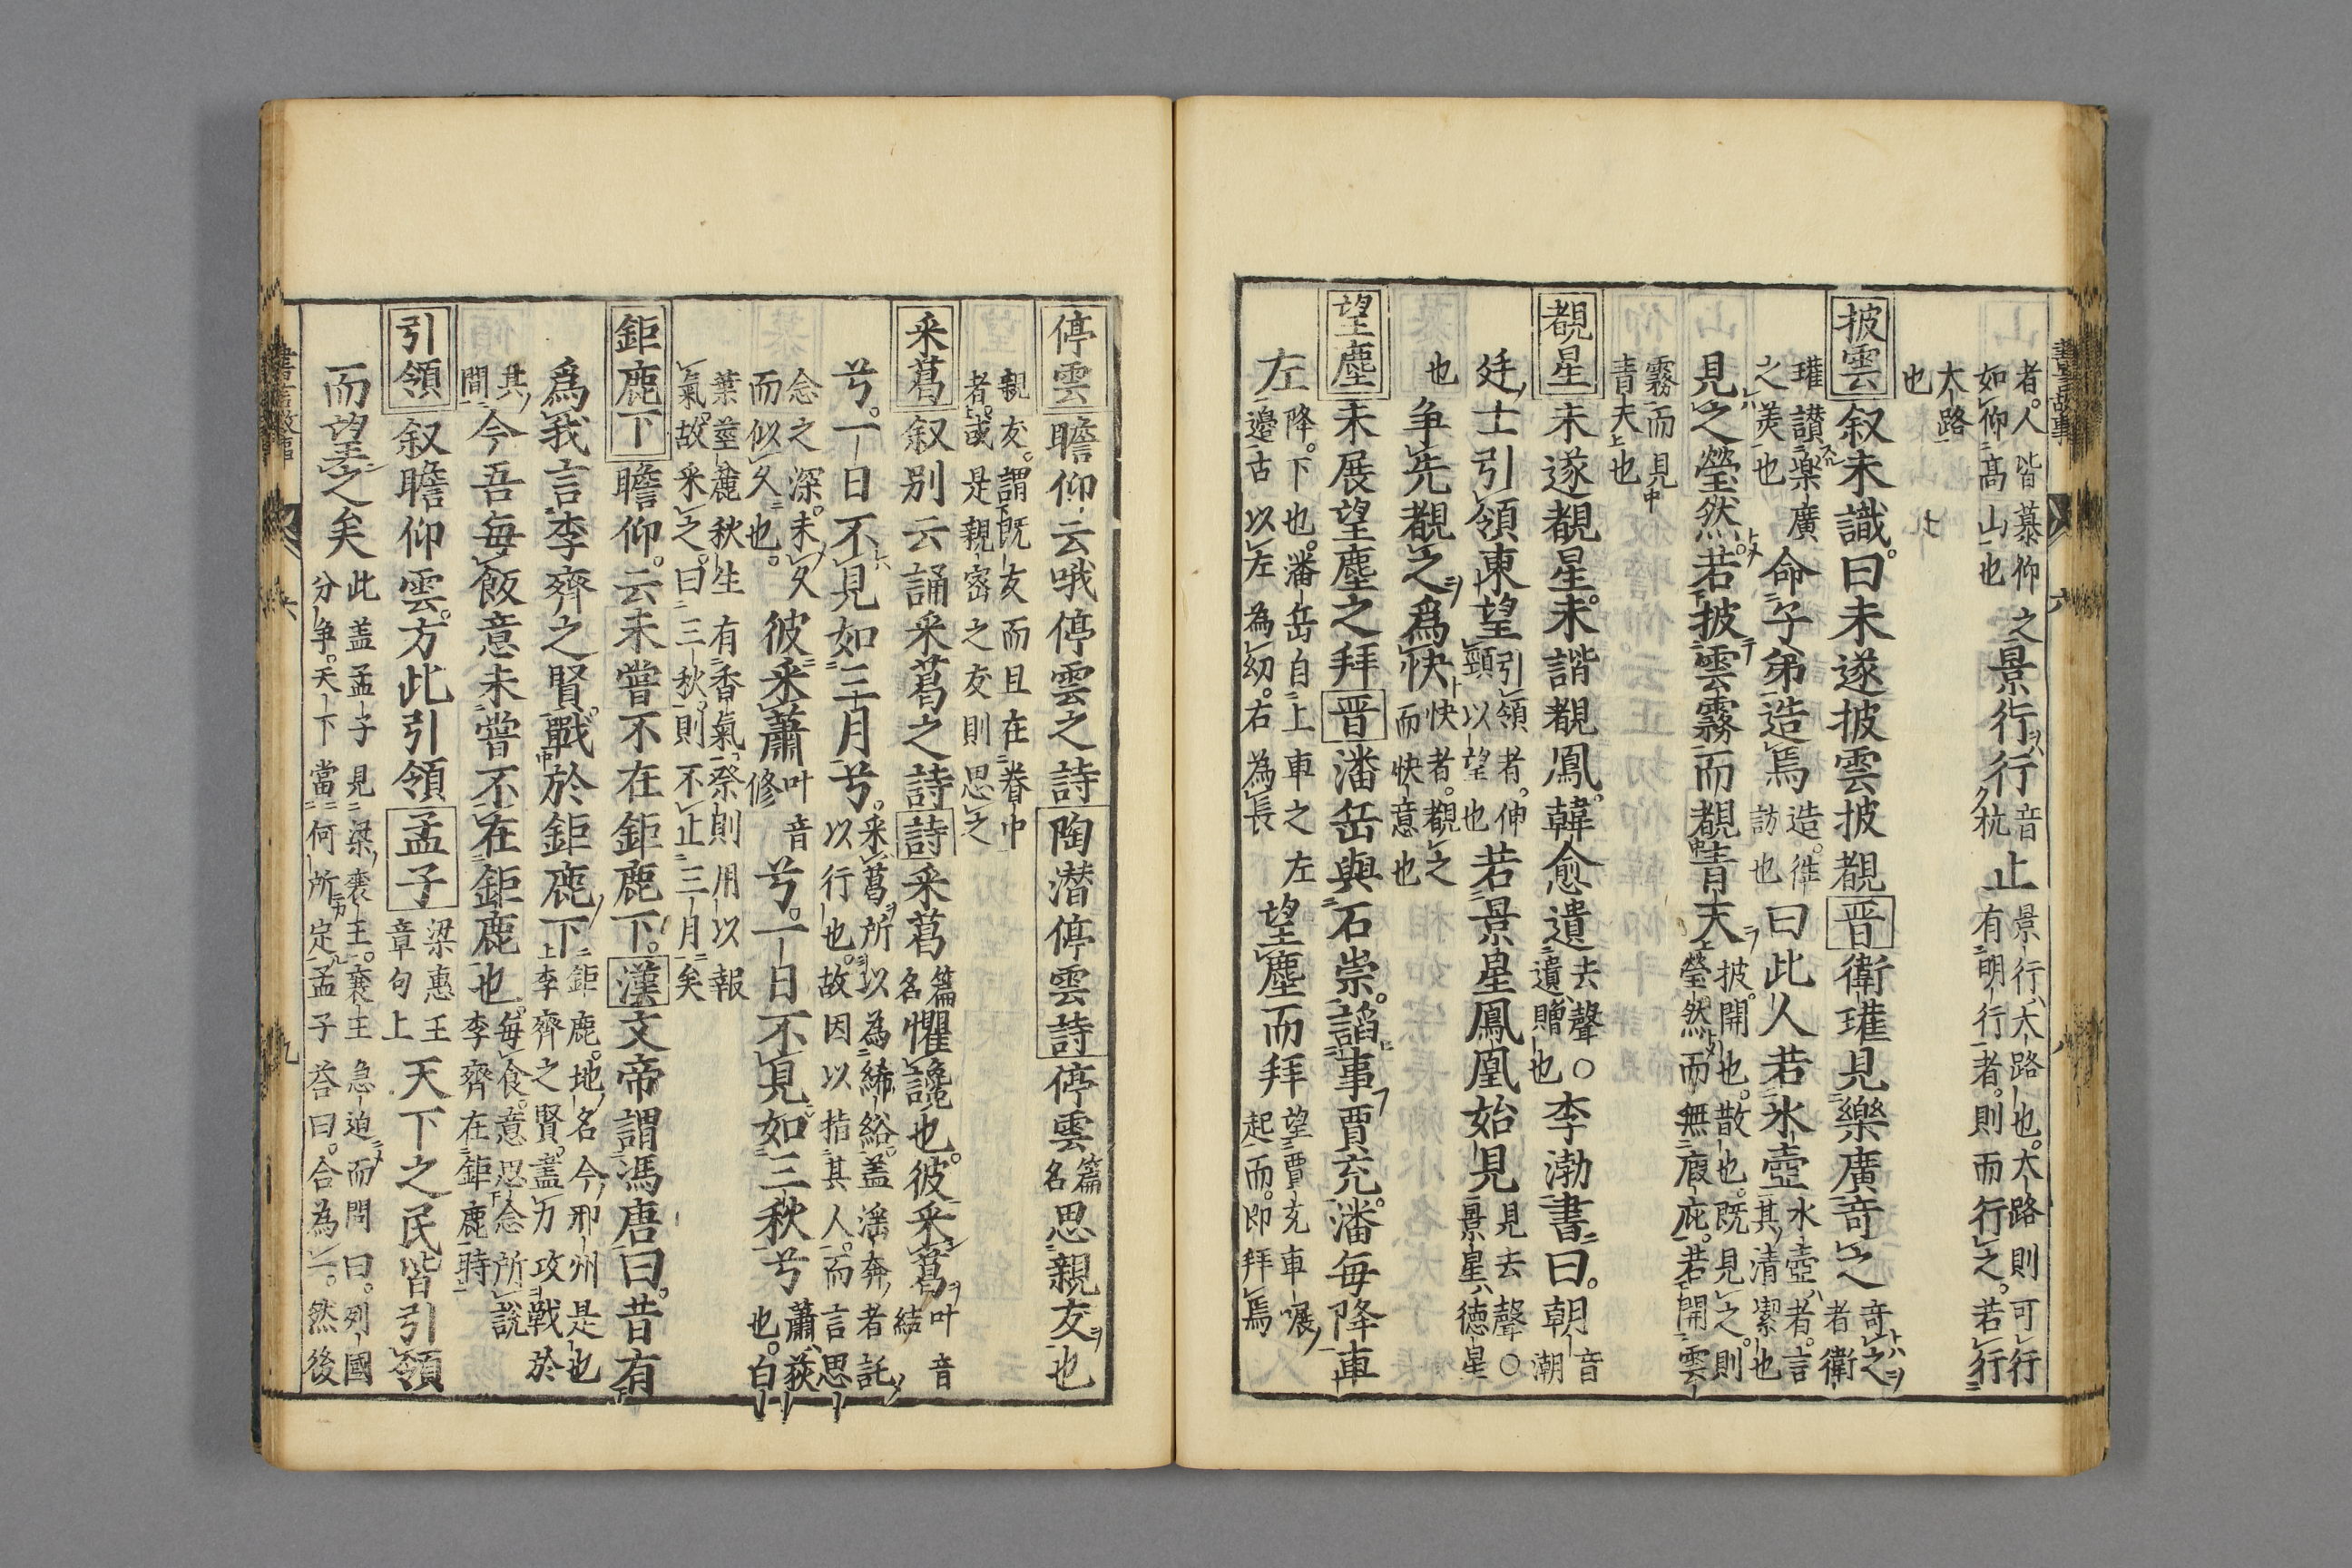 者人皆慕仰之
如仰高山也
景行行
音
杭
止
景行大路也大路則可行
有明行者則而行之若行
大路
也
披雲叙未識曰未遂披雲披覩晋衛瓘見樂廣竒之
竒之
者衛
瓘讃樂廣
之美也
命子弟造焉
造徃
訪也
曰此人若氷壺
氷壺者言
其清潔也
見之瑩然若披雲霧而覩青天
披開也散也既見之則
瑩然而無瘕庇若開雲
霧而見
青天也
覩星未遂覩星未諧覩鳳韓愈遺
去聲○
遺贈也
李渤書曰朝
音
潮
廷士引領東望
引領者伸
頸以望也
若景星鳳凰始見
見去聲○
景星德星
也
争先覩之爲快
快者覩之
而快意也
望塵未展望塵之拜晋潘岳與石崇謟事賈充潘每降車
左
降下也潘岳自上車之左
邊古以左為幼右為長
望塵而拜
望賈充車
起而即拜焉
書言故事
六
停雲瞻仰云哦停雲之詩陶潜停雲詩停雲
篇
名
思親友也
親友謂既友而且在眷中
者或是親宻之友則思之
采葛叙别云誦采葛之詩詩采葛
篇
名
懼讒也彼采葛
叶音
結
兮一日不見如三月兮
采葛所以為絺綌盖滛奔者託
以行也故因以指其人而言思
念之深未久
而似久也
彼采蕭
叶音
修
兮一日不見如三秋兮
蕭荻
也白
葉莖麄秋生有香氣祭則用以報
氣故采之曰三秋則不止三月矣
鉅鹿下瞻仰云未嘗不在鉅鹿下漢文帝謂馮唐曰昔有
爲我言李齊之賢戰於鉅鹿下
鉅鹿地名今邢州是也
李齊之賢盡力攻戰於
其
間
今吾毎飯意未嘗不在鉅鹿也
毎食意思念所說
李齊在鉅鹿時
引領叙瞻仰雲方此引領孟子
梁惠王
章句上
天下之民皆引領
而望之矣
此盖孟子見梁襄王襄王急迫而問曰列國
分争天下當何所定孟子荅曰合為一然後
書言故事
六
九